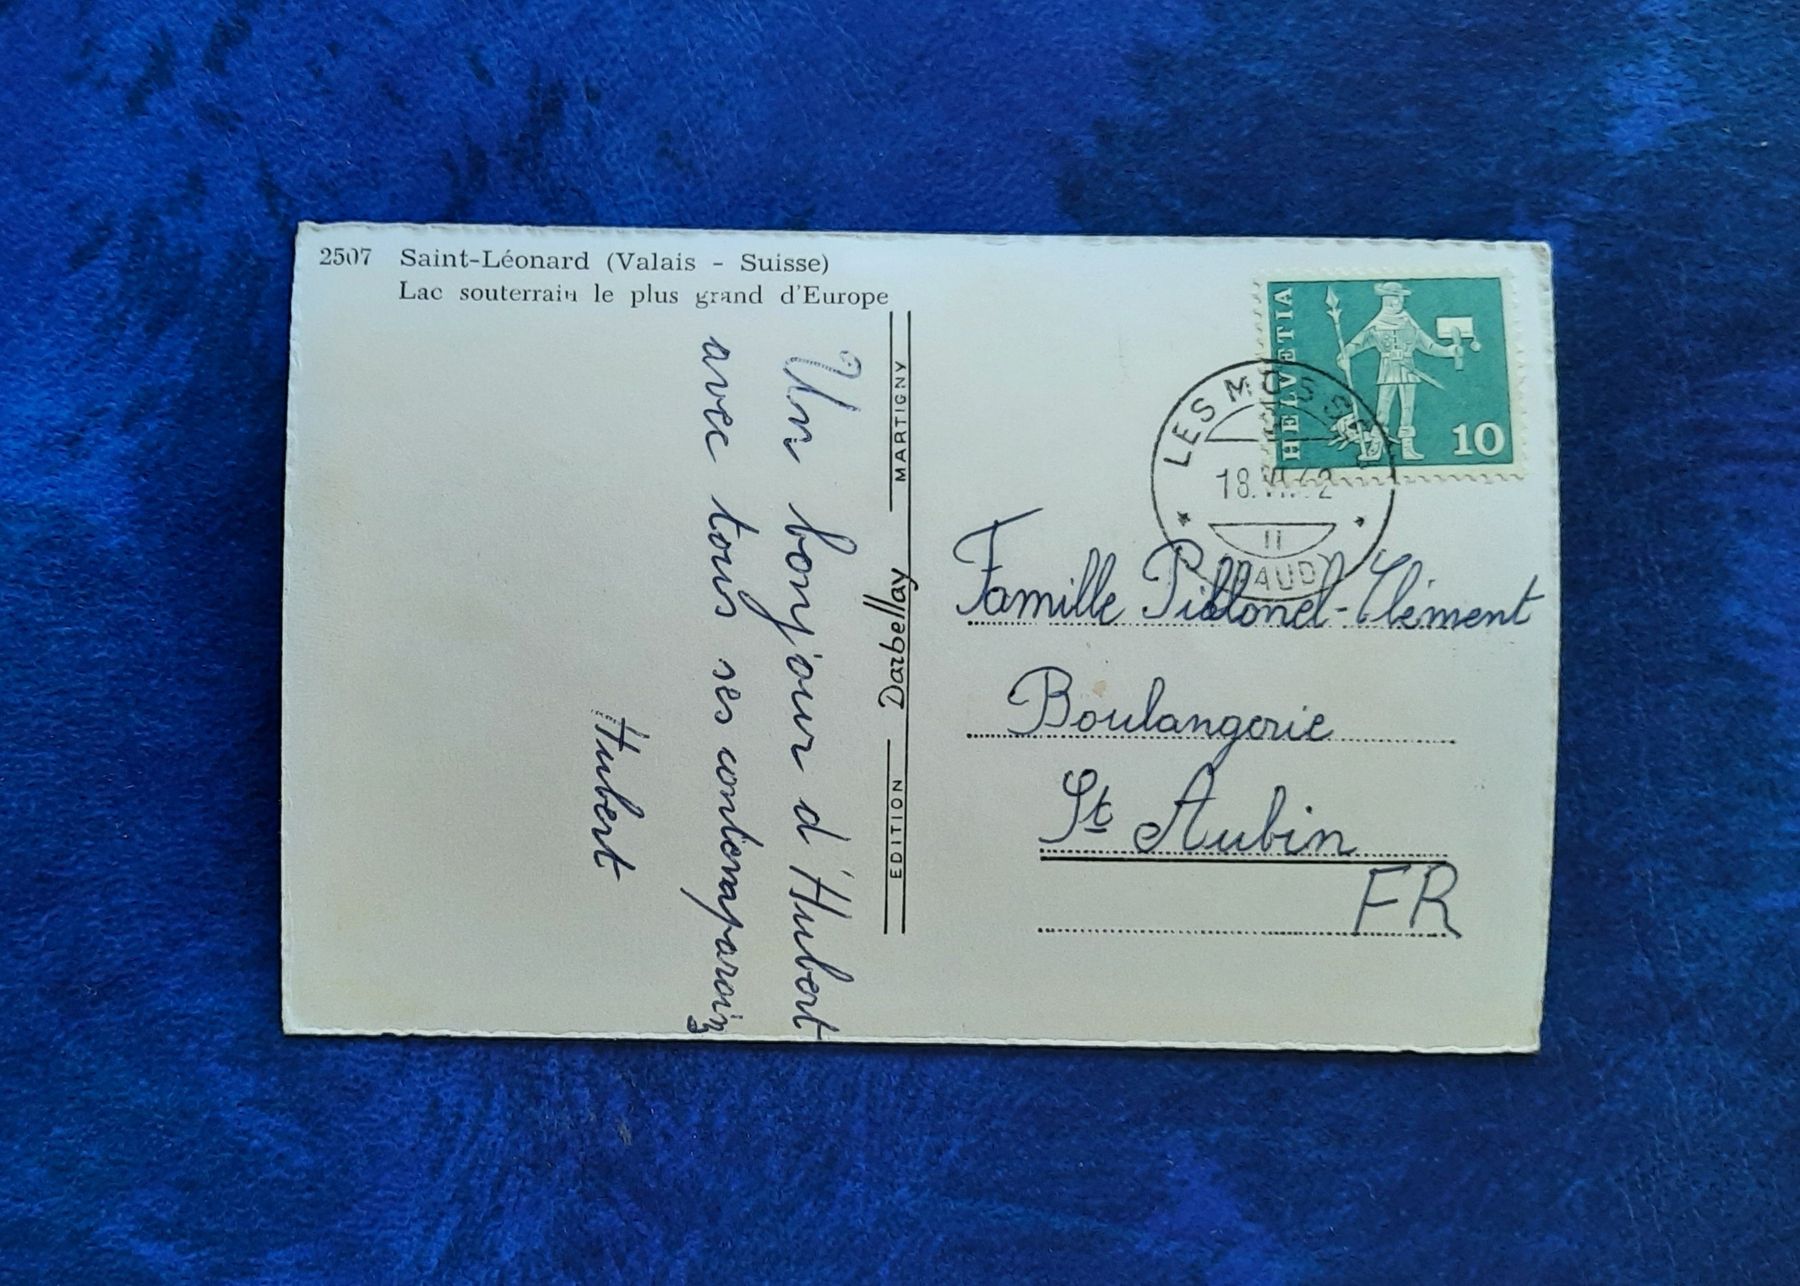 2507 Saint-Léonard (Valais - Suisse)
Lac souterrain le plus grand d'Europe
Un bonjour d'Hubert
avec tous ses contemparainz
Hubert
EDITION Darbellay MARTIGNY
HELVETIA
10
LES MOSSES
18.VI.62
11
VAUD
Famille Clément
Boulangerie
St Aubin
FR